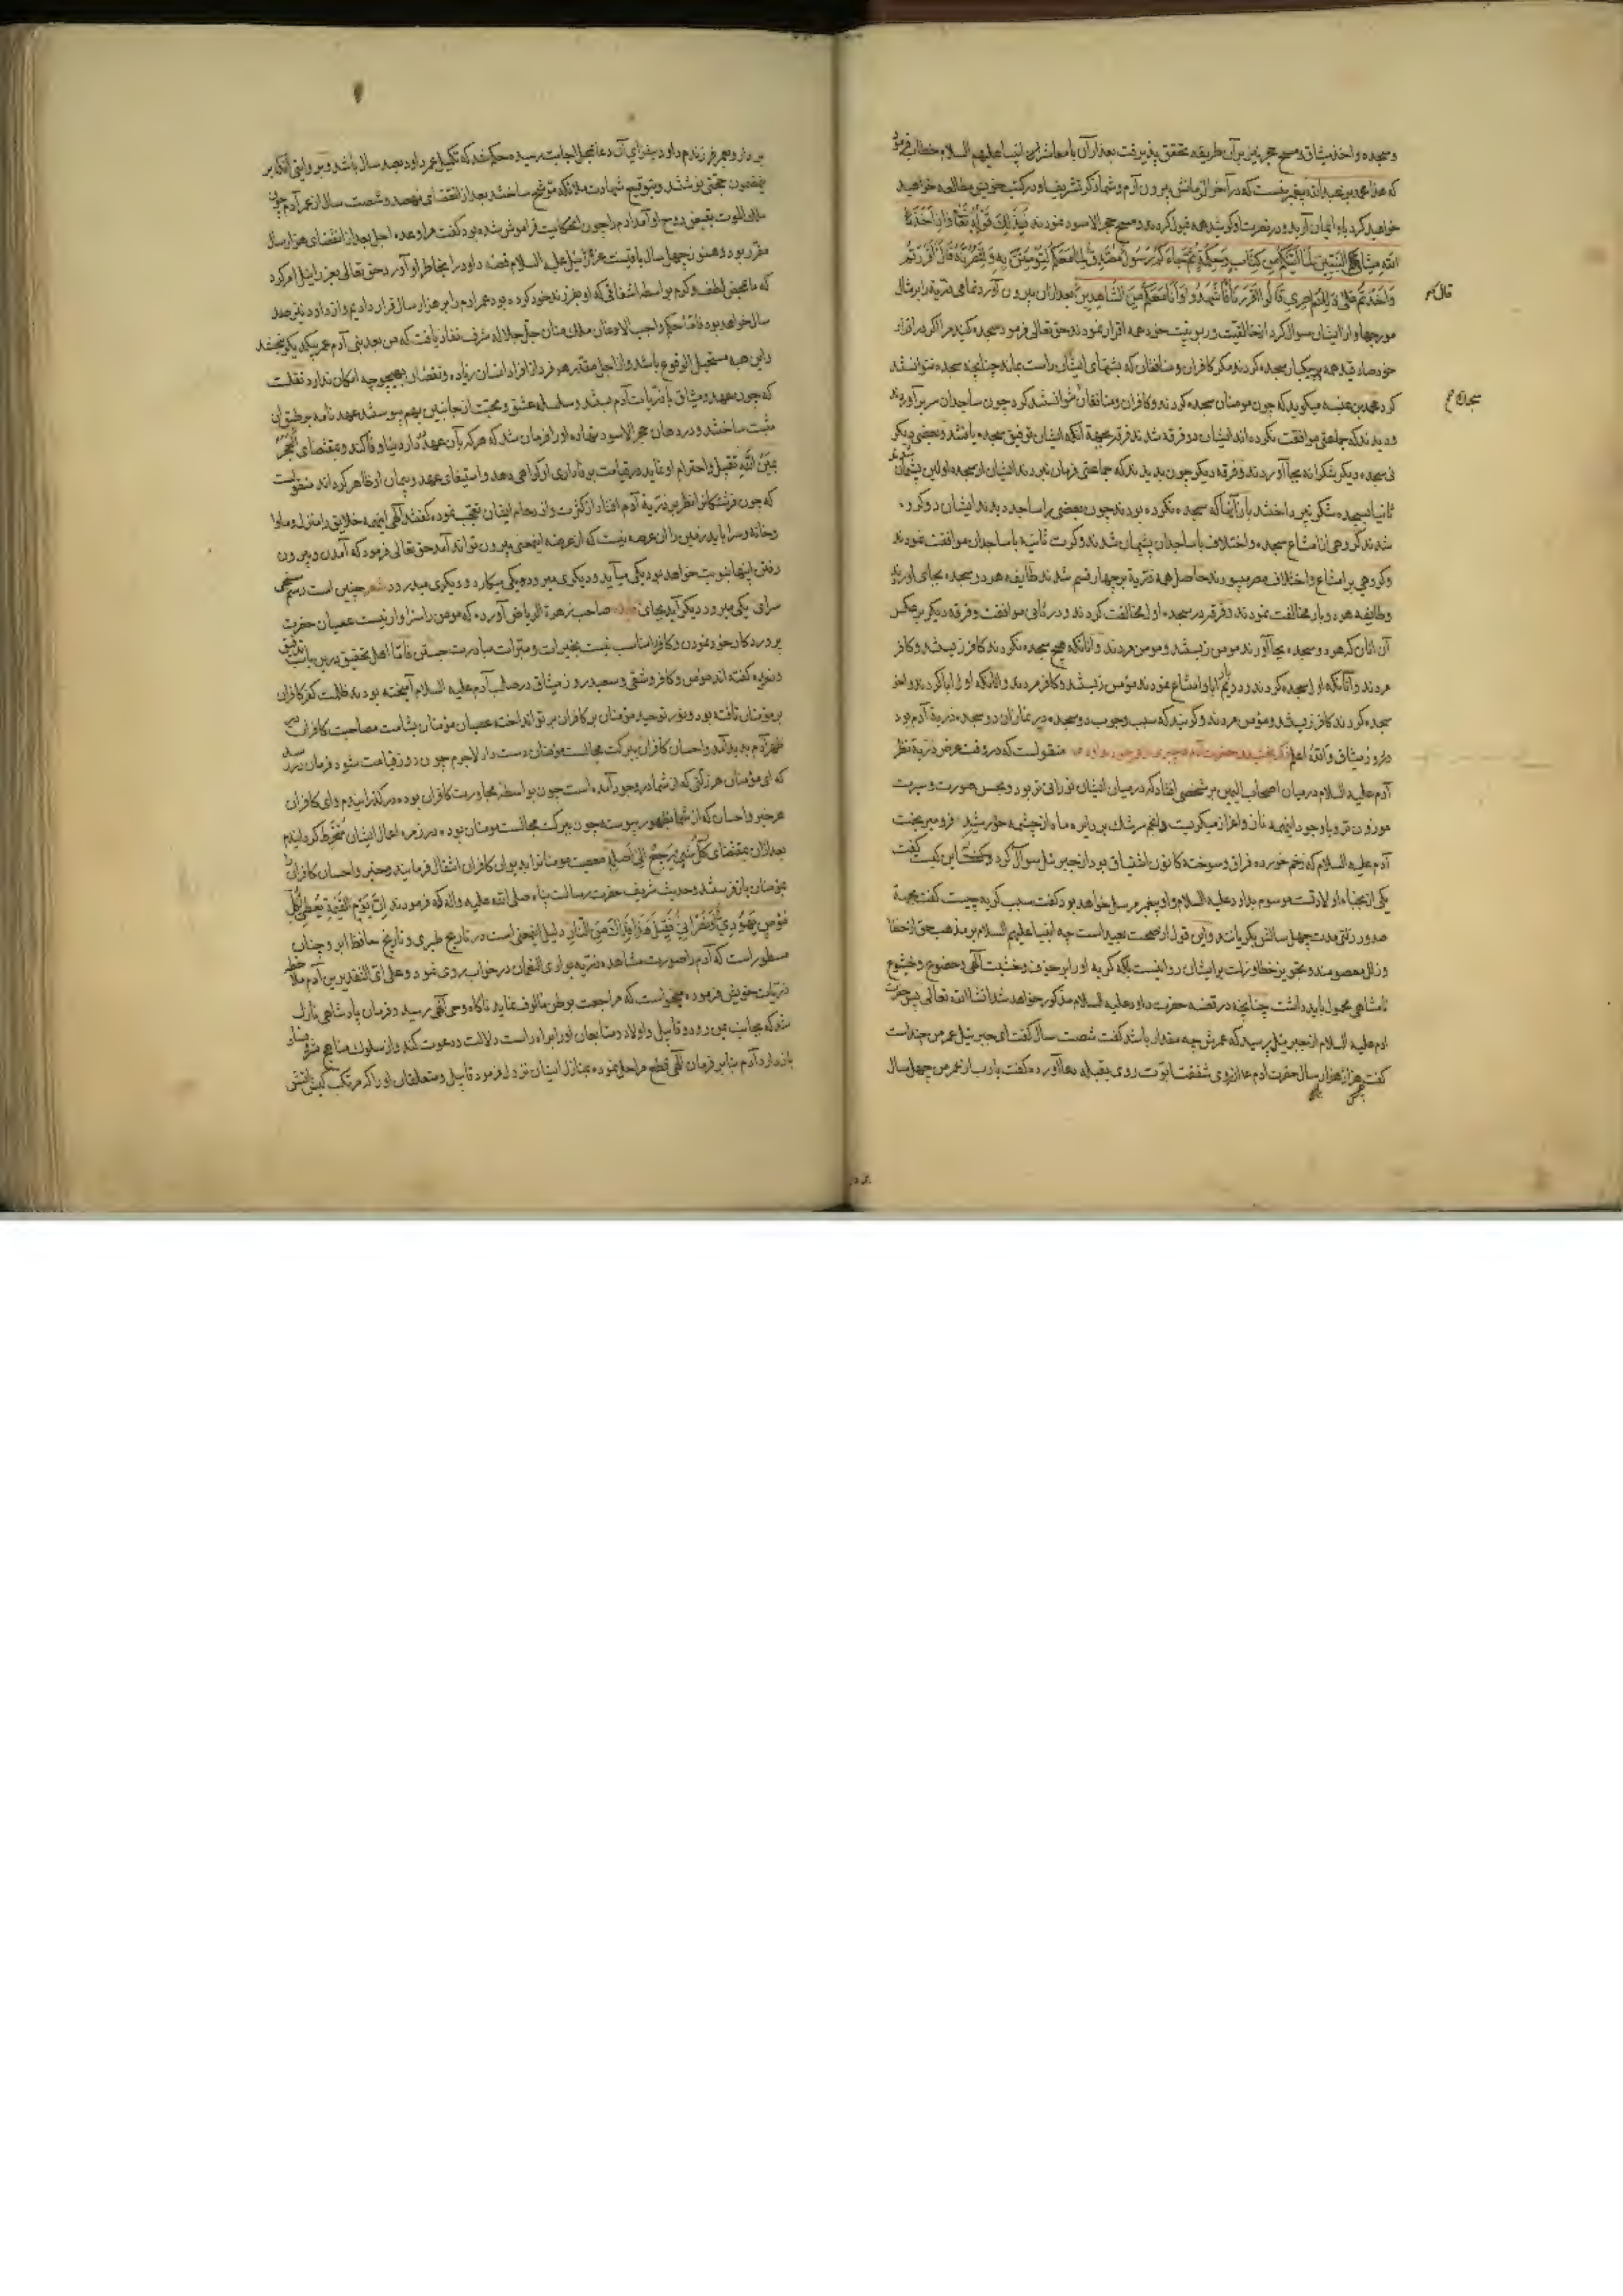 وسجده واخذ میثاق ومسح حجر برآن طریقه تحقق پذیرفت بعد ازآن یا معاشر انبیا علیهم السلام خطاب فرمود
که هذا محمد پیغمبریست که در آخر الزمان بیرون آدم وشما ذکر تشریف او در کتب خویش مطالعه خواهید
خواهید کرد باو ایمان آرید ودر نصرت او کوشید همه قبول کردند ومسح حجر الاسود نمودند فذلک قوله تعالی واذ اخذ
الله میثاق النبیین لما آتیتکم من کتاب وحکمة ثم جاءکم رسول مصدق لما معکم لتؤمنن به ولتنصرنه قال أأقررتم
واخذتم علی ذلکم اصری قالوا اقررنا فاشهدوا وانا معکم من الشاهدین بعد ازان بیرون آورد تمامی ذریة را بر مثال
قال کم
مورچها واز ایشان سوال کرد از خالقیت وربوبیت خود همه اقرار نمودند وحق تعالی فرمود سجده کنید مرا اکر در اقرار
خود صادقید همه بیکبار سجده کردند مکر کافران ومنافقان که پشتهای ایشان راست بماند چنانچه سجده نتوانستند
کرد محمد بن عنبسه میکوید که چون مومنان سجده کردند وکافران ومنافقان نتوانستند کرد چون ساجدان سر برآوردند
ودیدند که جماعتی موافقت نکرده اند ایشان دو فرقه شدند فرقه بجهة آنکه ایشان توفیق سجده یافتند وبعضی دیکر
نی سجده دیکر شکرانه بجا آوردند وفرقه دیکر چون بدیدند که جماعتی فرمان نبردند ایشان از سجده اولین پشیمان شدند
ثانیا بسجده شکر نپرداختند باز آنها که سجده نکرده بودند چون بعضی را ساجد دیدند ایشان دو کروه
شدند کروهی از امتناع سجده واختلاف با ساجدان پشیمان شدند وکرت ثانیه با ساجدان موافقت نمودند
وکروهی بر امتناع واختلاف مصر بودند حاصل همه ذریة بر چهار قسم شدند طایفه هر دو سجده بجای آوردند
وطایفه هر دو بار مخالفت نمودند وفرقه در سجده اول مخالفت کردند ودر ثانی موافقت وفرقه دیکر برعکس
آن انان که هر دو سجده بجا آوردند مومن زیستند ومومن مردند وانانکه هیچ سجده نکردند کافر زیستند وکافر
مردند وآنانکه اول سجده کردند ودر دویم ابا وامتناع نمودند مؤمن زیستند وکافر مردند وانانکه اول ابا کردند واخر
سجده کردند کافر زیستند ومؤمن مردند وکویند که سبب وجوب دو سجده در نماز ان دو سجده ذریة آدم بود
در روز میثاق والله اعلم منقولست که در وقت عرض ذریة نظر
آدم علیه السلام در میان اصحاب الیمین بر شخصی افتاد که در میان ایشان نورانی تر بود وبحسن صورت وسیرت
موزون تر وبا وجود اینهمه ناز واعزاز میکریست وانجم سرشک بر دایره ماه از چشمه خورشید فرو میریخت
آدم علیه السلام که زخم خورده فراق وسوخته کانون اشفاق بود از جبرئیل سوال کرد وکفت این کیست کفت
یکی از نجباء اولاد تست موسوم بداود علیه السلام واو پیغمبر مرسل خواهد بود کفت سبب کریه چیست کفت بجهة
صدور زلتی مدت چهل سالش بکریانند واین قول از صحت بعید است چه انبیا علیهم السلام بر مذهب حق از خطا
وزلل معصومند وتجویز خطا وزلت بر ایشان روا نیست بلکه کریه او را بر خوف وخشیت آلهی وخضوع وخشوع
نامتناهی محمول باید داشت چنانچه در قصه حضرت داود علیه السلام مذکور خواهد شد انشا الله تعالی پس حضرت
ادم علیه السلام از جبرئیل پرسید که عمرش چه مقدار باشد کفت شصت سال کفت ای جبرئیل عمر من چند است
کفت هزار سال حضرت ادم از روی شفقت ابوت روی بقبله دعا آورده کفت یارب از عمر من چهل سال
بردار وبعمر فرزندم داود بیفزای آن دعا بمحل اجابت رسیده حکم شد که تکمیل عمر داود بصد سال باشد وبروایتی آنکه بر
مضمون حجتی نوشتند وبتوقیع شهادت ملائکه موشح ساختند بعد از انقضای نهصد وشصت سال از عمر آدم چون
ملک الموت بقبض روح او آمد آدم را چون انحکایت فراموش شده بود کفت مرا وعده اجل بعد از انقضای هزار سال
مقرر بود وهنوز چهل سال باقیست عزرائیل علیه السلام قصه داود را بخاطر او آورد حق تعالی بعزرائیل امر کرد
که ما بمحض لطف وکرم بواسطه اشفاقی که او بفرزند خود کرده بود عمر ادم را بر هزار سال قرار دادیم واز داود نیز صد
سال خواهد بود فاما حکم واجب الاذعان ملک منان جل جلاله شرف نفاذ یافت که من بعد بنی آدم عمر بیکدیکر نبخشند
واین همه مستحیل الوقوع باشد واز اجل مقدر هر فرد از افراد انسان زیاده ونقصان بهیچوجه امکان ندارد نقلست
که چون عهد ومیثاق با ذریات آدم بستند وسلسله عشق ومحبت از جانبین بهم پیوستند عهد نامه بر طبق آن
مثبت ساختند ودر دهان حجر الاسود نهاده او را فرمان شد که هرکه بآن عهد در دنیا وفا کند ومقتضای الحجر
یمین الله تقبیل واحترام او نماید در قیامت بوفاداری او کواهی دهد واستیفای عهد وپیمان او ظاهر کرداند منقولست
که چون فرشتکان را نظر بر ذریة آدم افتاد از کثرت وازدحام ایشان تعجب نموده کفتند الهی اینهمه خلایق را منزل وماوا
وخانه وسرا باید زمین را ان عرصه نیست که از عرضه اینمعنی بیرون تواند آمد حق تعالی فرمود که آمدن وبیرون
رفتن اینها بنوبت خواهد بود یکی میآید ودیکری میرود ویکی میکارد ودیکری میدرود شعر چنین است رسم
سرای یکی میرود دیکر آید بجای صاحب زهرة الریاض آورده که مومن را سزاوار نیست عصیان حضرت
پروردکار خود نمودن وکافر را مناسب نیست بخیرات ومبرات مبادرت جستن فاما اهل تحقیق درین باب
کفته اند مؤمن وکافر وشقی وسعید روز میثاق در صلب آدم علیه السلام آمیخته بودند ظلمت کفر کافران
بر مؤمنان تافته بود ونور توحید مؤمنان بر کافران پرتو انداخته عصیان مؤمنان بشامت مصاحبت کافران
ظهر آدم پدید آمد واحسان کافران ببرکت مجالست مؤمنان دست داد لاجرم چون روز قیامت شود فرمان در رسد
که ای مؤمنان هر زلتی که از شما در وجود آمده است چون بواسطه مجاورت کافران بوده درکذرانیدم وای کافران
هر خیر واحسان که از شما بظهور پیوسته چون ببرکت مجالست مومنان بوده در زمره اعمال ایشان منخرط کردانیدم
بعد ازان بمقتضای کل شیء یرجع الی اصله معصیت مومنانرا بدیوان کافران انتقال فرمایند وخیر واحسان کافران
بمؤمنان باز فرستند وحدیث شریف حضرت رسالت پناه صلی الله علیه واله که فرمودند ان یوم القیمة یعطی کل
مؤمن یهودی او نصرانی فیقال هذا فداک من النار دلیل اینمعنی است در تاریخ طبری وتاریخ حافظ ابرو چنان
مسطور است که آدم را صورت مشاهده ذریه بوادی النعمان در خواب روی نمود وعلی ای التقدیرین آدم ملاحظه
ذریات خویش فرموده میخواست که مراجعت بوطن مالوف نماید ناکاه وحی آلهی رسید وفرمان پادشاهی نازل
شد که بجانب یمن رود وقابیل واولاد ومتابعان او را براه راست دلالت ودعوت کند واز سلوک مناهج شر وفساد
باز دارد آدم بنابر فرمان آلهی قطع مراحل نموده بمنازل ایشان نزول فرمود قابیل ومتعلقان او را که مرتکب کیش